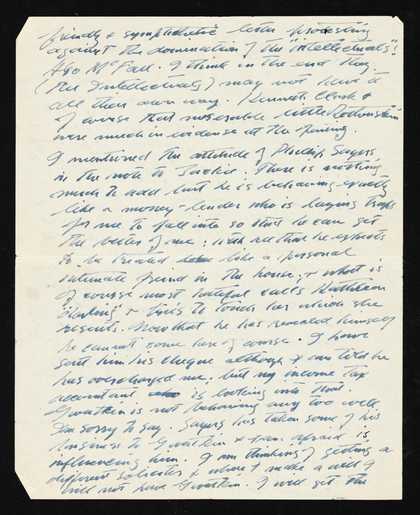 friendly & sympathetic letter protesting
against the domination of the "intellectuals"!
Also McFall. I think in the end they
(the Intellectuals) may not have it
all their own way. Kenneth Clark &
of course that miserable little Rothenstein
were much in evidence at the opening.
I mentioned the attitude of Phillip Sayers
in the note to Jackie. There is nothing
much to add but he is behaving exactly
like a money-lender who is laying traps
for me to fall into so that he can get
the better of me; with all that he expects
to be treated like a personal
intimate friend in the house; & what is
of course most hateful calls Kathleen
"darling" & tries to touch her which she
resents. Now that he has revealed himself
he cannot come here of course. I have
sent him his cheque although I am told he
has overcharged me; but my income tax
accountant is looking into that.
Gwatkin is not behaving any too well
I'm sorry to say. Sayers has taken some of his
business to Gwatkin & I am afraid is
influencing him. I am thinking of getting a
different solicitor & when I make a will I
will not have Gwatkin. I will get the